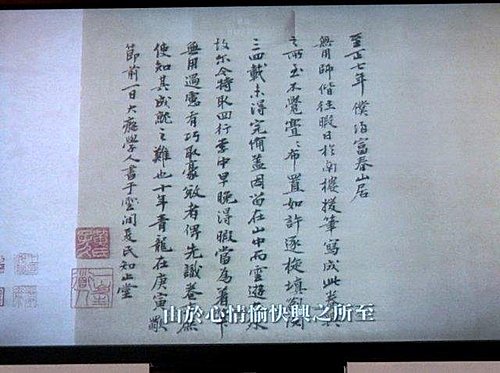 至正七年僕歸富春山居
無用師偕往暇日於南樓援筆寫成此卷興
之所至不覺亹亹布置如許逐旋填劄閱
三四載未得完備蓋因留在山中而雲遊在
故爾今特取回行李中早晚得暇當為著
無用過慮有巧取豪敚者俾先識卷末庶
使知其成就之難也十年青龍在庚寅歜
節前一日大癡學人書于雲間夏氏知止堂
由於心情愉快興之所至